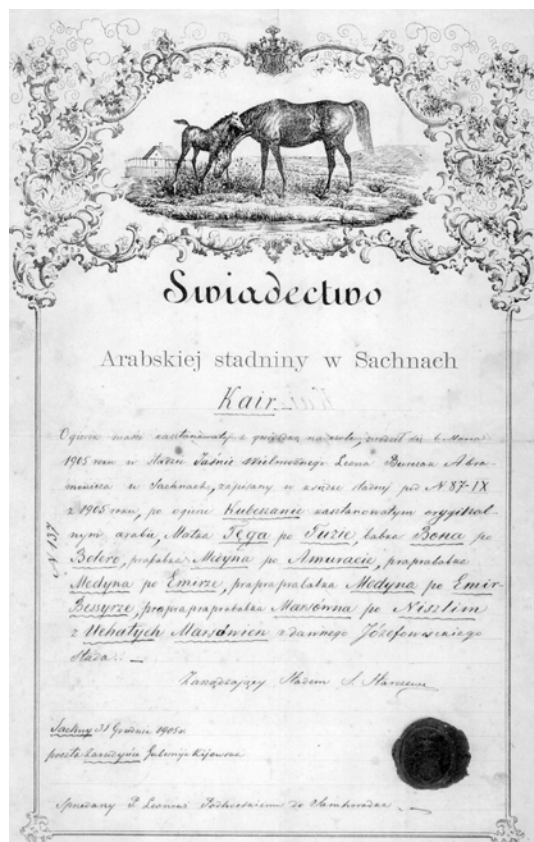 Swiadectwo
Arabskiej stadniny w Sachnach
Kair
Ogierek maści kasztanowatej z gwiazdką na czole, urodził się 6 Marca
1905 roku w stadzie Jaśnie Wielmożnego Leona Bunczak Abra-
mowicza w Sachnach, zapisany w książce stadnej pod N 87-IX
z 1905 roku, po ogierze Kubeszanie kasztanowatym orygital-
nym arabie, Matka Tęga po Tuzie, babka Bona po
Bolero, prababka Medyna po Amuracie, praprababka
Medyna po Emirze, prapraprababka Medyna po Emir-
Bessyrze, praprapraprababka Marsówna po Nisztim
z Uchatych Marsówien z dawnego Józefowskiego
Stada: —
N 137
Zarządzający Stadem S.
Sachny 31 Grudnia 1905 r.
poczta Gubernija Kijowska
Sprzedany P. do Samhorodka